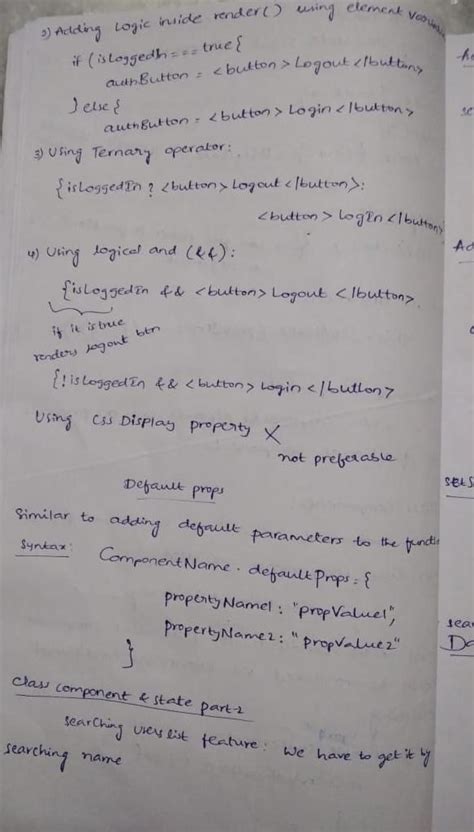 2) Adding Logic inside render() using element
if (isLoggedIn === true{
authButton = <button> Logout </button>
} else {
authButton = <button> Login </button>
3) Using Ternary operator:
{isLoggedIn ? <button> Logout </button>:
<button> LogIn </button>
4) Using logical and (&&):
{isLoggedIn && <button> Logout </button>
if it is true
renders logout btn
{!isLoggedIn && <button> Login </button>
Using CSS Display property X
not preferable
Default props
Similar to adding default parameters to the
Syntax: ComponentName.defaultProps={
propertyName1: "propValue1",
propertyName2: "propValue2"
}
Class component & state part-2
searching users list feature: We have to get it by
searching name